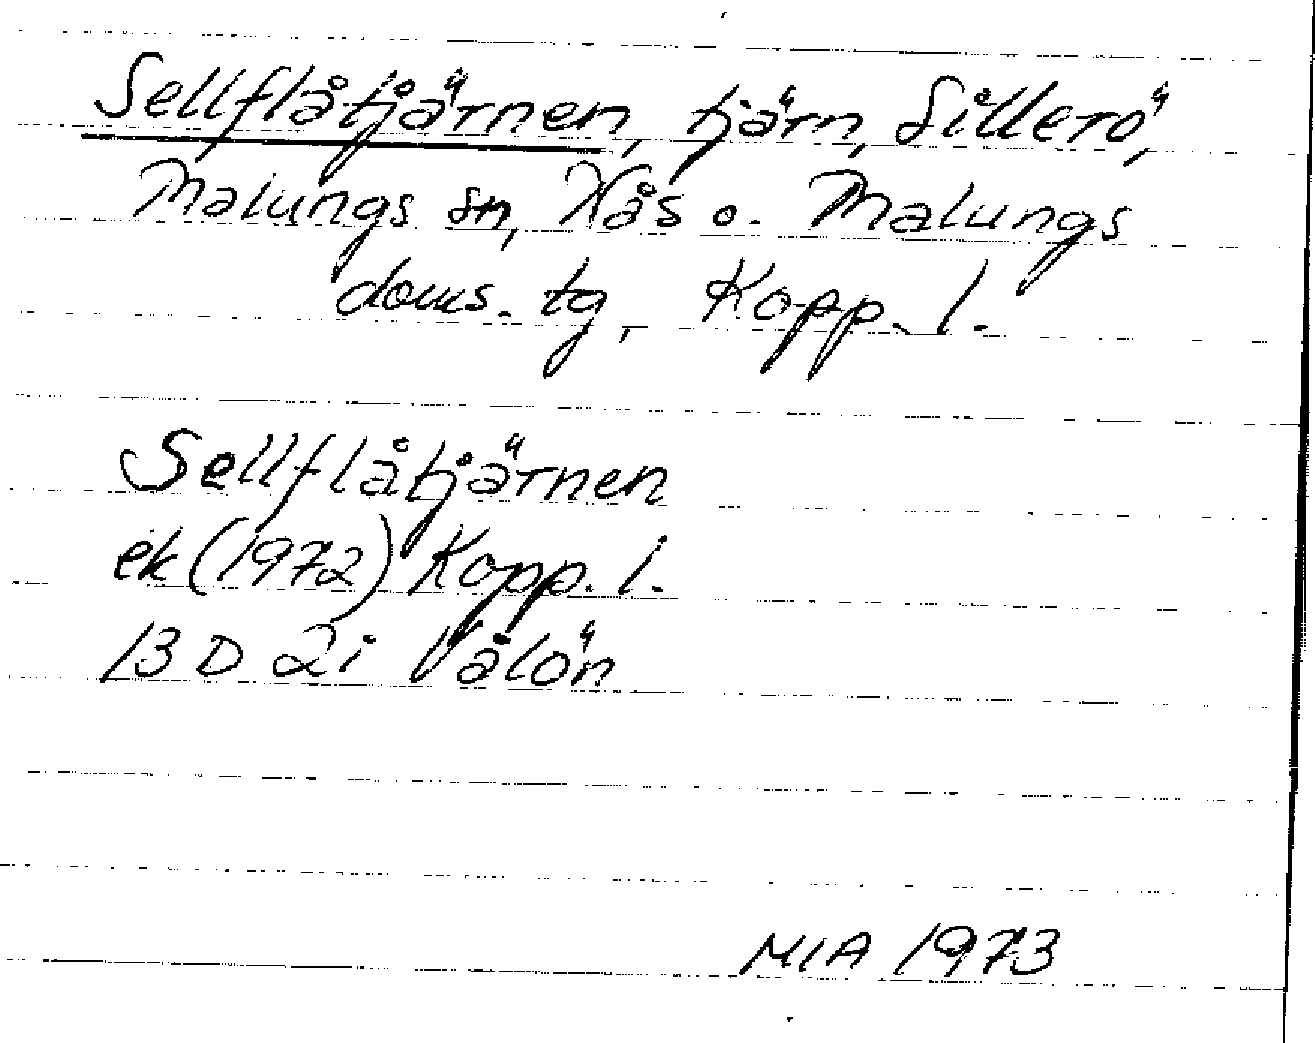 Sellflåtjärnen, tjärn, Sillerö,
Malungs sn, Nås o. Malungs
doms. tg, Kopp. l.
Sellflåtjärnen
ek (1972) Kopp. l.
13 D 2i Vålön
MIA 1973